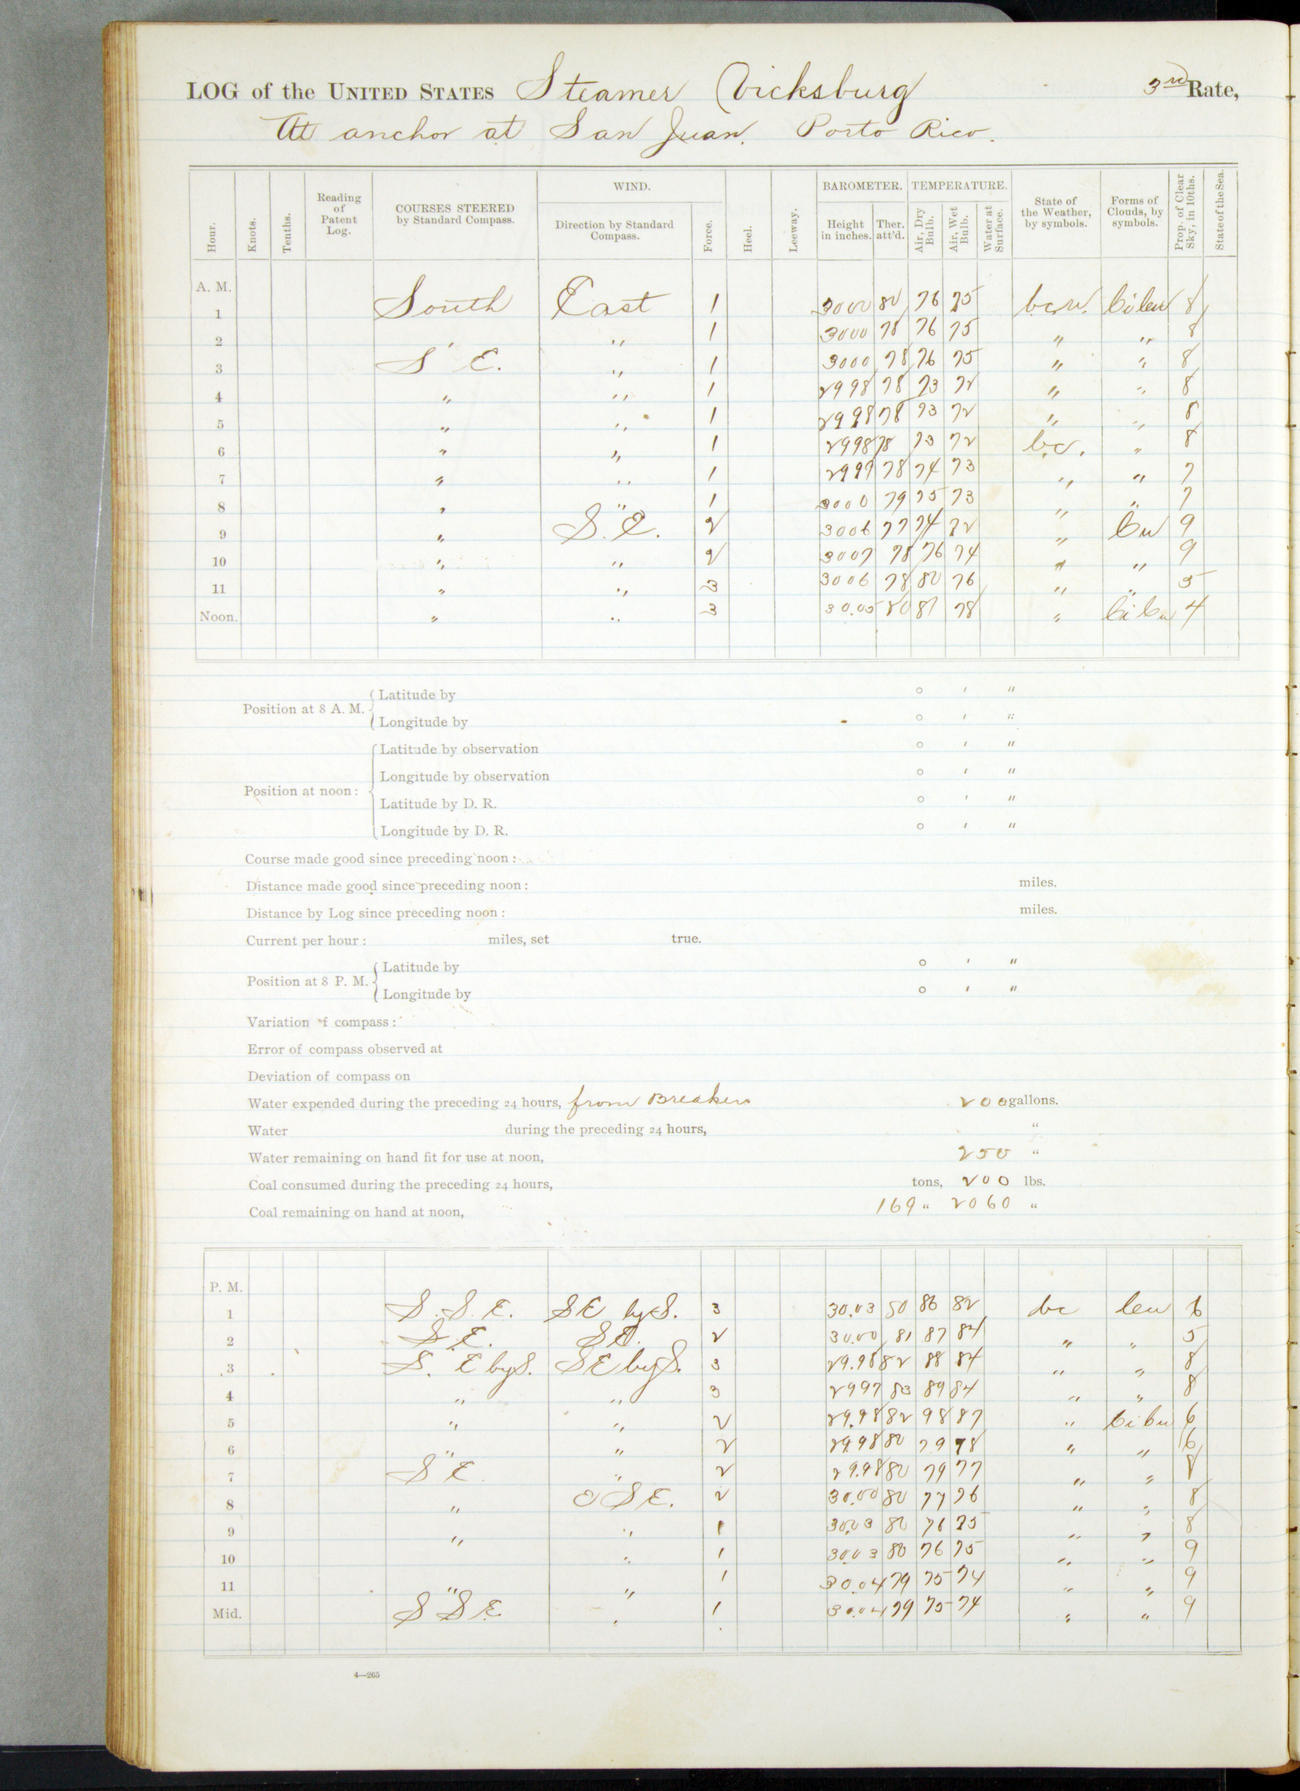 LOG of the UNITED STATES Steamer Vicksburg 3rd Rate,
At anchor at San Juan, Porto Rico.
Hour. Knots. Tenths. Reading of Patent Log. COURSES STEERED by Standard Compass. WIND. Direction by Standard Compass. Force. Heel. Leeway. BAROMETER. Height in inches. Ther. att'd. TEMPERATURE. Air, Dry Bulb. Air, Wet Bulb. Water at Surface. State of the Weather, by symbols. Forms of Clouds, by symbols. Prop. of Clear Sky, in 10ths. State of the Sea.
A. M.
1 South East 1 3000 80 76 75 8
2 " 1 3000 78 76 75 " " 8
3 S E. " 1 3000 78 76 75 " " 8
4 " " 1 2998 78 73 72 " " 8
5 " " 1 2998 78 73 72 " " 8
6 " " 1 2998 78 73 72 bc. " 8
7 " " 1 2999 78 74 73 " " 7
8 " " 1 3000 79 75 73 " " 7
9 " S. E. 2 3006 77 74 72 " Cu 9
10 " " 2 3007 78 76 74 " " 9
11 " " 3 3006 78 80 76 " " 5
Noon. " " 3 30.05 80 81 78 " Ci Cu 4
Position at 8 A. M. Latitude by ° ' "
Longitude by ° ' "
Position at noon: Latitude by observation ° ' "
Longitude by observation ° ' "
Latitude by D. R. ° ' "
Longitude by D. R. ° ' "
Course made good since preceding noon:
Distance made good since preceding noon: miles.
Distance by Log since preceding noon: miles.
Current per hour: miles, set true.
Position at 8 P. M. Latitude by ° ' "
Longitude by ° ' "
Variation of compass:
Error of compass observed at
Deviation of compass on
Water expended during the preceding 24 hours, from Breakers 200 gallons.
Water during the preceding 24 hours, "
Water remaining on hand fit for use at noon, 250 "
Coal consumed during the preceding 24 hours, tons, 200 lbs.
Coal remaining on hand at noon, 169 " 2060 "
P. M.
1 S. S. E. SE by S. 3 30.03 80 86 82 bc Cu 6
2 S. E. SE. 2 30.00 81 87 84 " " 5
3 S. E by S. SE by S. 3 29.98 82 88 84 " " 8
4 " " 3 2997 83 89 84 " " 8
5 " " 2 29.98 82 98 87 " Ci Cu 6
6 " " 2 29.98 80 79 78 " " 6
7 S E. " 2 29.98 80 79 77 " " 8
8 " SE. 2 30.00 80 77 76 " " 8
9 " " 1 30.03 80 76 75 " " 8
10 " 1 30.03 80 76 75 " " 9
11 " " 1 30.04 79 75 74 " " 9
Mid. S S E " 1 30.04 79 75 74 " " 9
4—265